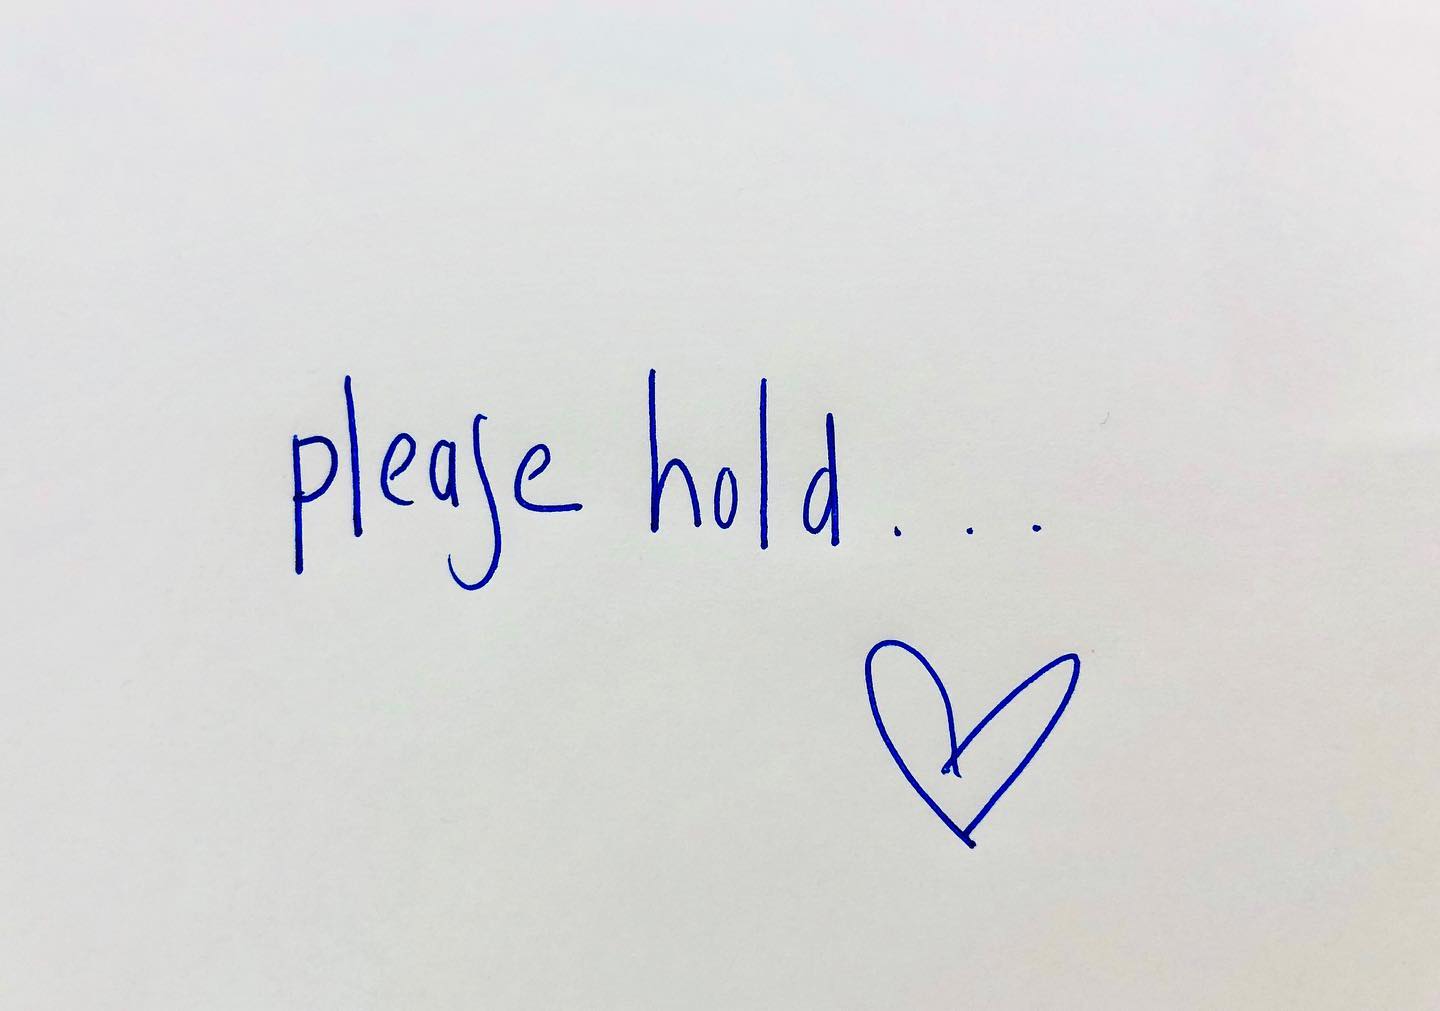 please hold...